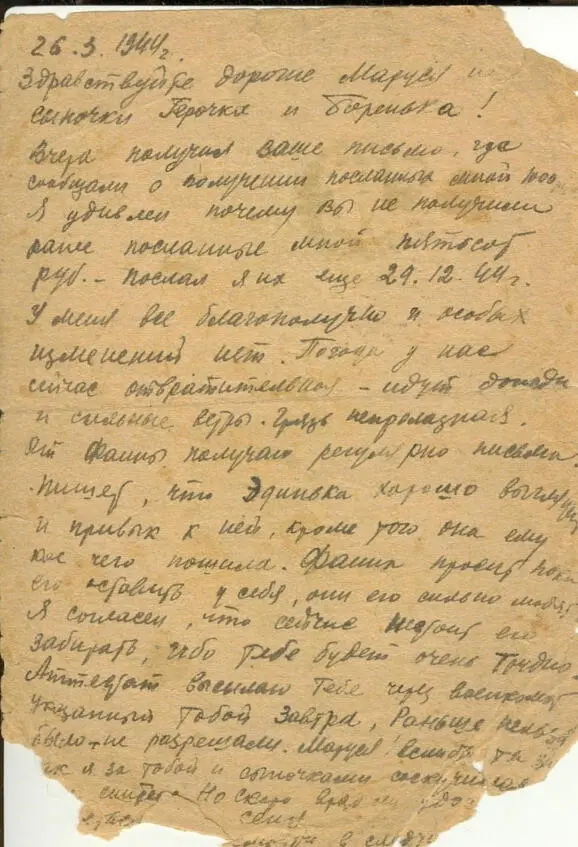 26.3.1944г.
Здравствуйте дорогие Маруся и
сыночки Герочка и Боренька!
Вчера получил ваше письмо, где
сообщали о получении посланных мной
Я удивлен почему вы не получили
ранее посланные мной пятьсот
руб. – послал я их еще 29.12.44г.
У меня все благополучно и особых
изменений нет. Погода у нас
сейчас отвратительная – идут дожди
и сильные ветры. Грязь непролазная.
От Фаины получаю регулярно письма.
Пишет, что Эдинька хорошо
и привык к ней, кроме того она ему
кое чего пошила. Фаина просит пока
его оставить у себя, они его сильно любят
Я согласен, что сейчас не стоит его
забирать, ибо тебе будет очень трудно.
Аттестат высылаю тебе через военкомат
указанный тобой завтра, Раньше нельзя
было – не разрешали. Маруся!
как я за тобой и сыночками соскучился
Но скоро